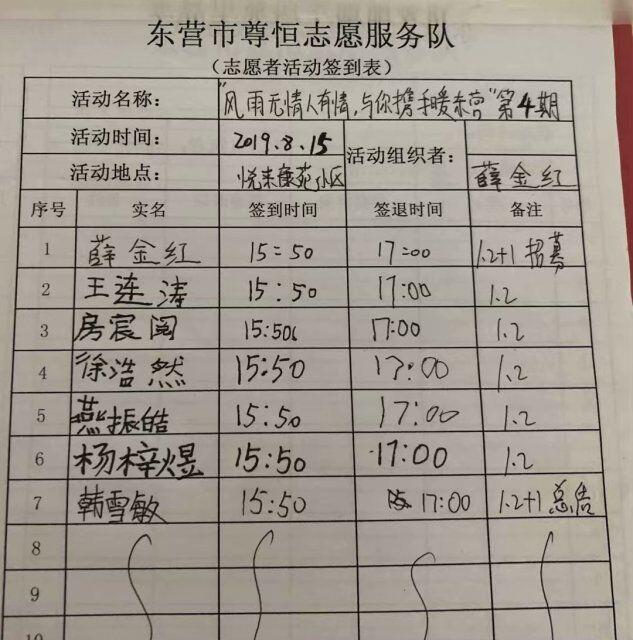 东营市尊恒志愿服务队
（志愿者活动签到表）
活动名称： "风雨无情人有情,与你携手暖东营"第4期
活动时间： 2019.8.15 活动组织者：
活动地点： 悦来康苑小区 薛金红
序号 实名 签到时间 签退时间 备注
1 薛金红 15:50 17:00 1.2+1 招募
2 王连涛 15:50 17:00 1.2
3 房宸阁 15:50 17:00 1.2
4 徐浩然 15:50 17:00 1.2
5 燕振皓 15:50 17:00 1.2
6 杨梓煜 15:50 17:00 1.2
7 韩雪敏 15:50 17:00 1.2+1 总结
8
9
10